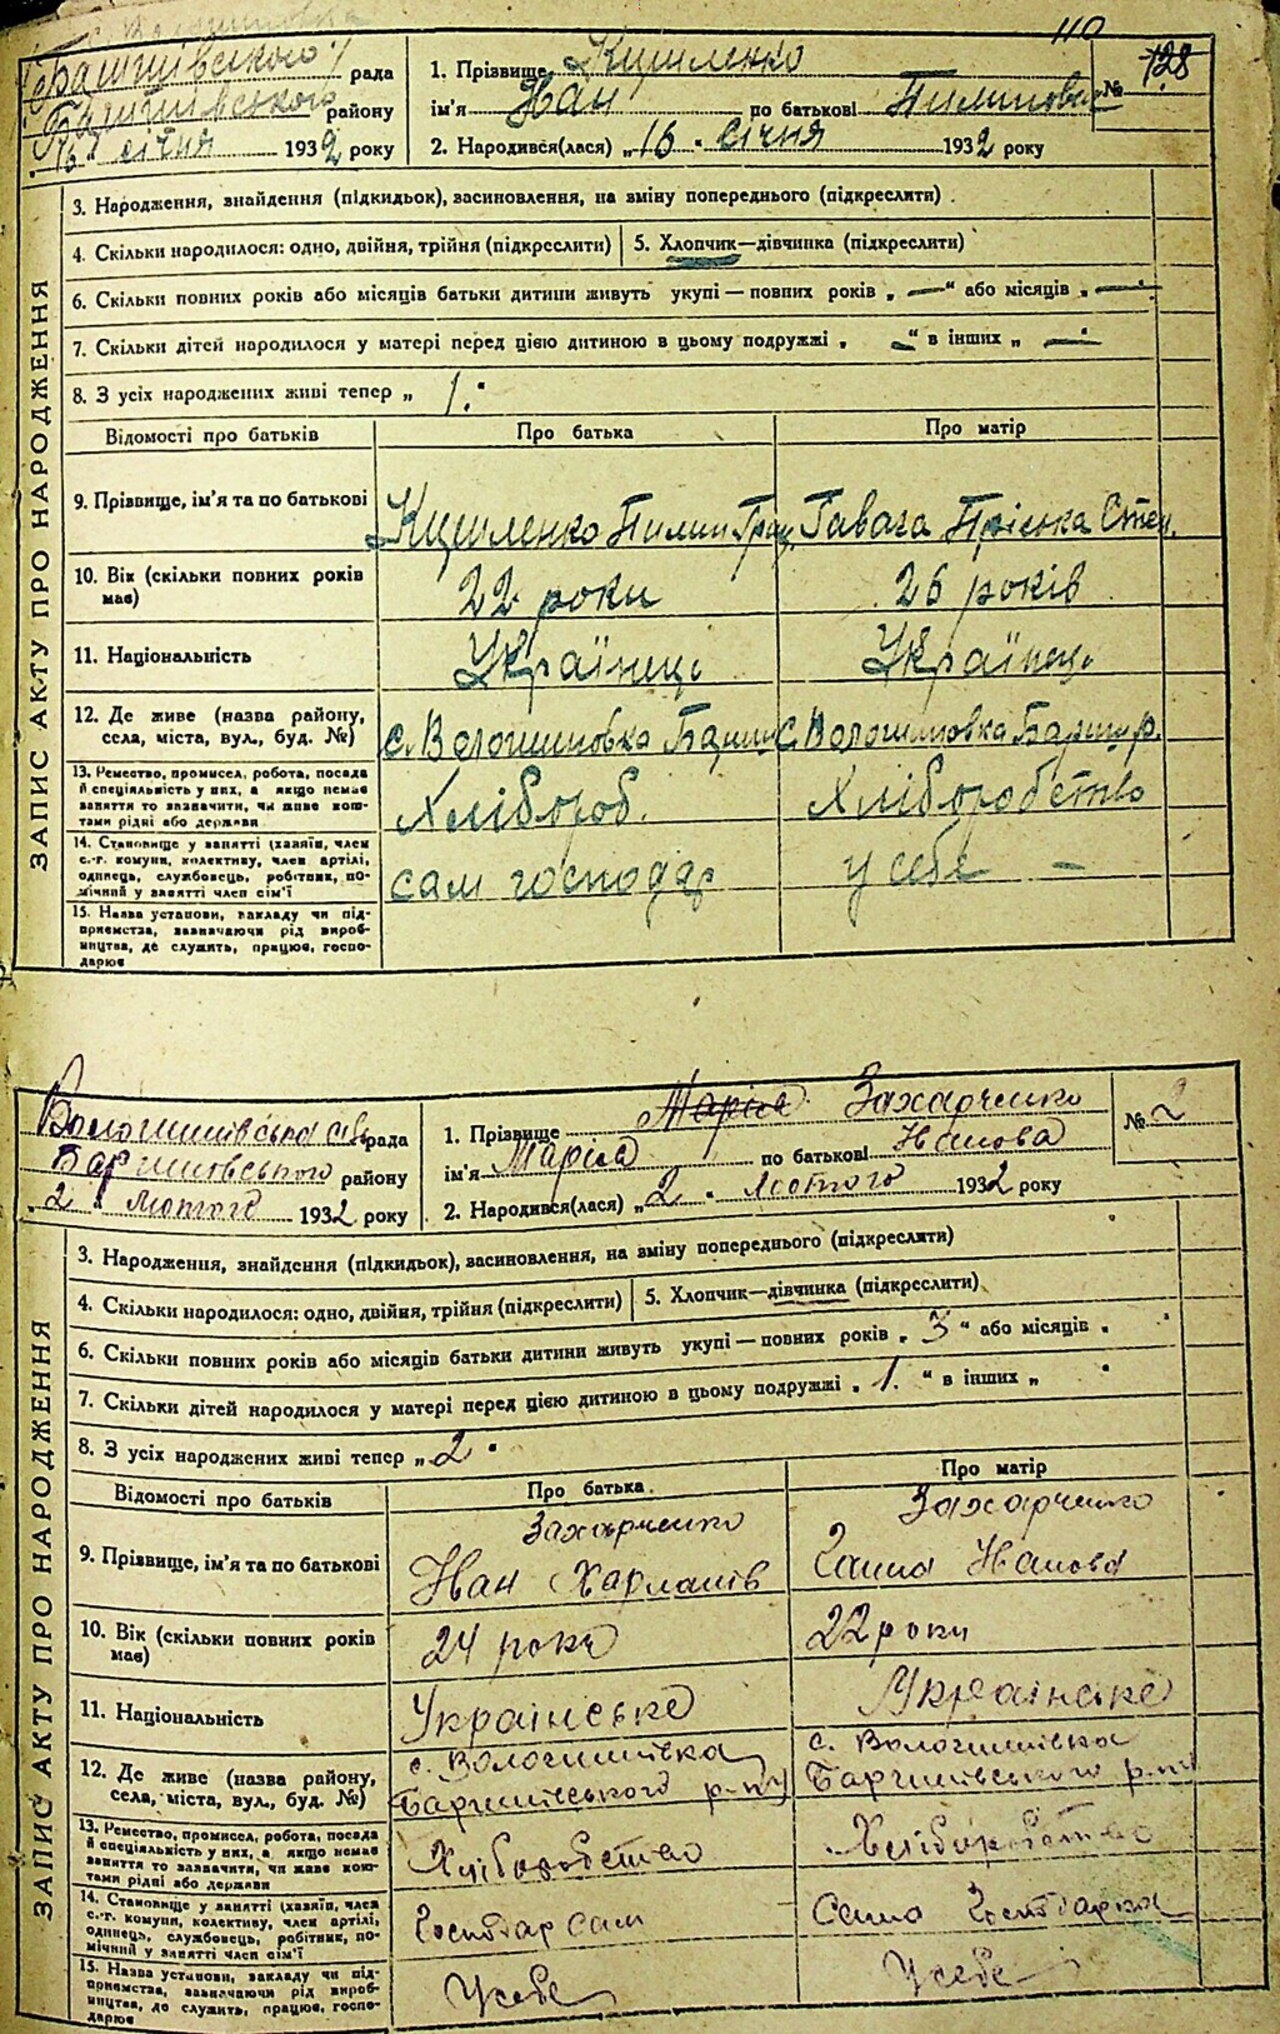 110
рада
району
16 січня 1932 року
1. Прізвище
ім'я Іван по батькові Пилипович
№ 128
2. Народився(лася) „16" січня 1932 року
ЗАПИС АКТУ ПРО НАРОДЖЕННЯ
3. Народження, знайдення (підкидьок), засиновлення, на зміну попереднього (підкреслити)
4. Скільки народилося: одно, двійня, трійня (підкреслити)
5. Хлопчик—дівчинка (підкреслити)
6. Скільки повних років або місяців батьки дитини живуть укупі — повних років „—" або місяців „—"
7. Скільки дітей народилося у матері перед цією дитиною в цьому подружжі „—" в інших „—"
8. З усіх народжених живі тепер „1."
Відомості про батьків
Про батька
Про матір
9. Прізвище, ім'я та по батькові
Пилип Гриц.
Пріська Степ.
10. Вік (скільки повних років
має)
22 роки
26 років
11. Національність
Українець
Українець
12. Де живе (назва району,
села, міста, вул., буд. №)
с. Вологшиновка
с. Вологшиновка р.
13. Ремество, промисел, робота, посада
й спеціяльність у них, а якщо немає
заняття то зазначити, чи живе кош-
тами рідні або держави
Хлібороб.
Хліборобство
14. Становище у занятті (хазяїн, член
с.-г. комуни, колективу, член артілі,
одинець, службовець, робітник, по-
мічний у занятті член сім'ї
сам господар
у себе —
15. Назва установи, закладу чи під-
приємства, зазначаючи рід вироб-
ництва, де служить, працює, госпо-
дарює
рада
району
„2" лютого 1932 року
1. Прізвище Марія Захарченко
ім'я Марія по батькові Іванова
№ 2
2. Народився(лася) „2" лютого 1932 року
ЗАПИС АКТУ ПРО НАРОДЖЕННЯ
3. Народження, знайдення (підкидьок), засиновлення, на зміну попереднього (підкреслити)
4. Скільки народилося: одно, двійня, трійня (підкреслити)
5. Хлопчик—дівчинка (підкреслити)
6. Скільки повних років або місяців батьки дитини живуть укупі — повних років „3" або місяців „ "
7. Скільки дітей народилося у матері перед цією дитиною в цьому подружжі „1." в інших „ "
8. З усіх народжених живі тепер „2"
Відомості про батьків
Про батька
Про матір
9. Прізвище, ім'я та по батькові
Захарченко
Іван Харлапів
Захарченко
Ганна Іванова
10. Вік (скільки повних років
має)
24 роки
22 роки
11. Національність
Українське
Українське
12. Де живе (назва району,
села, міста, вул., буд. №)
с. Вологшинівка
р-ну
с. Вологшинівка
р-ну
13. Ремество, промисел, робота, посада
й спеціяльність у них, а якщо немає
заняття то зазначити, чи живе кош-
тами рідні або держави
Хліборобство
Хліборобство
14. Становище у занятті (хазяїн, член
с.-г. комуни, колективу, член артілі,
одинець, службовець, робітник, по-
мічний у занятті член сім'ї
Господар сам
Сама Господарка
15. Назва установи, закладу чи під-
приємства, зазначаючи рід вироб-
ництва, де служить, працює, госпо-
дарює
У себе
У себе